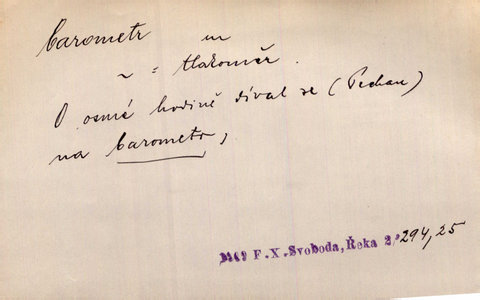 barometr m
~ = tlakoměr.
O osmé hodině díval se (Pechan)
na barometr,
F.X.Svoboda, Řeka 2, 294,25